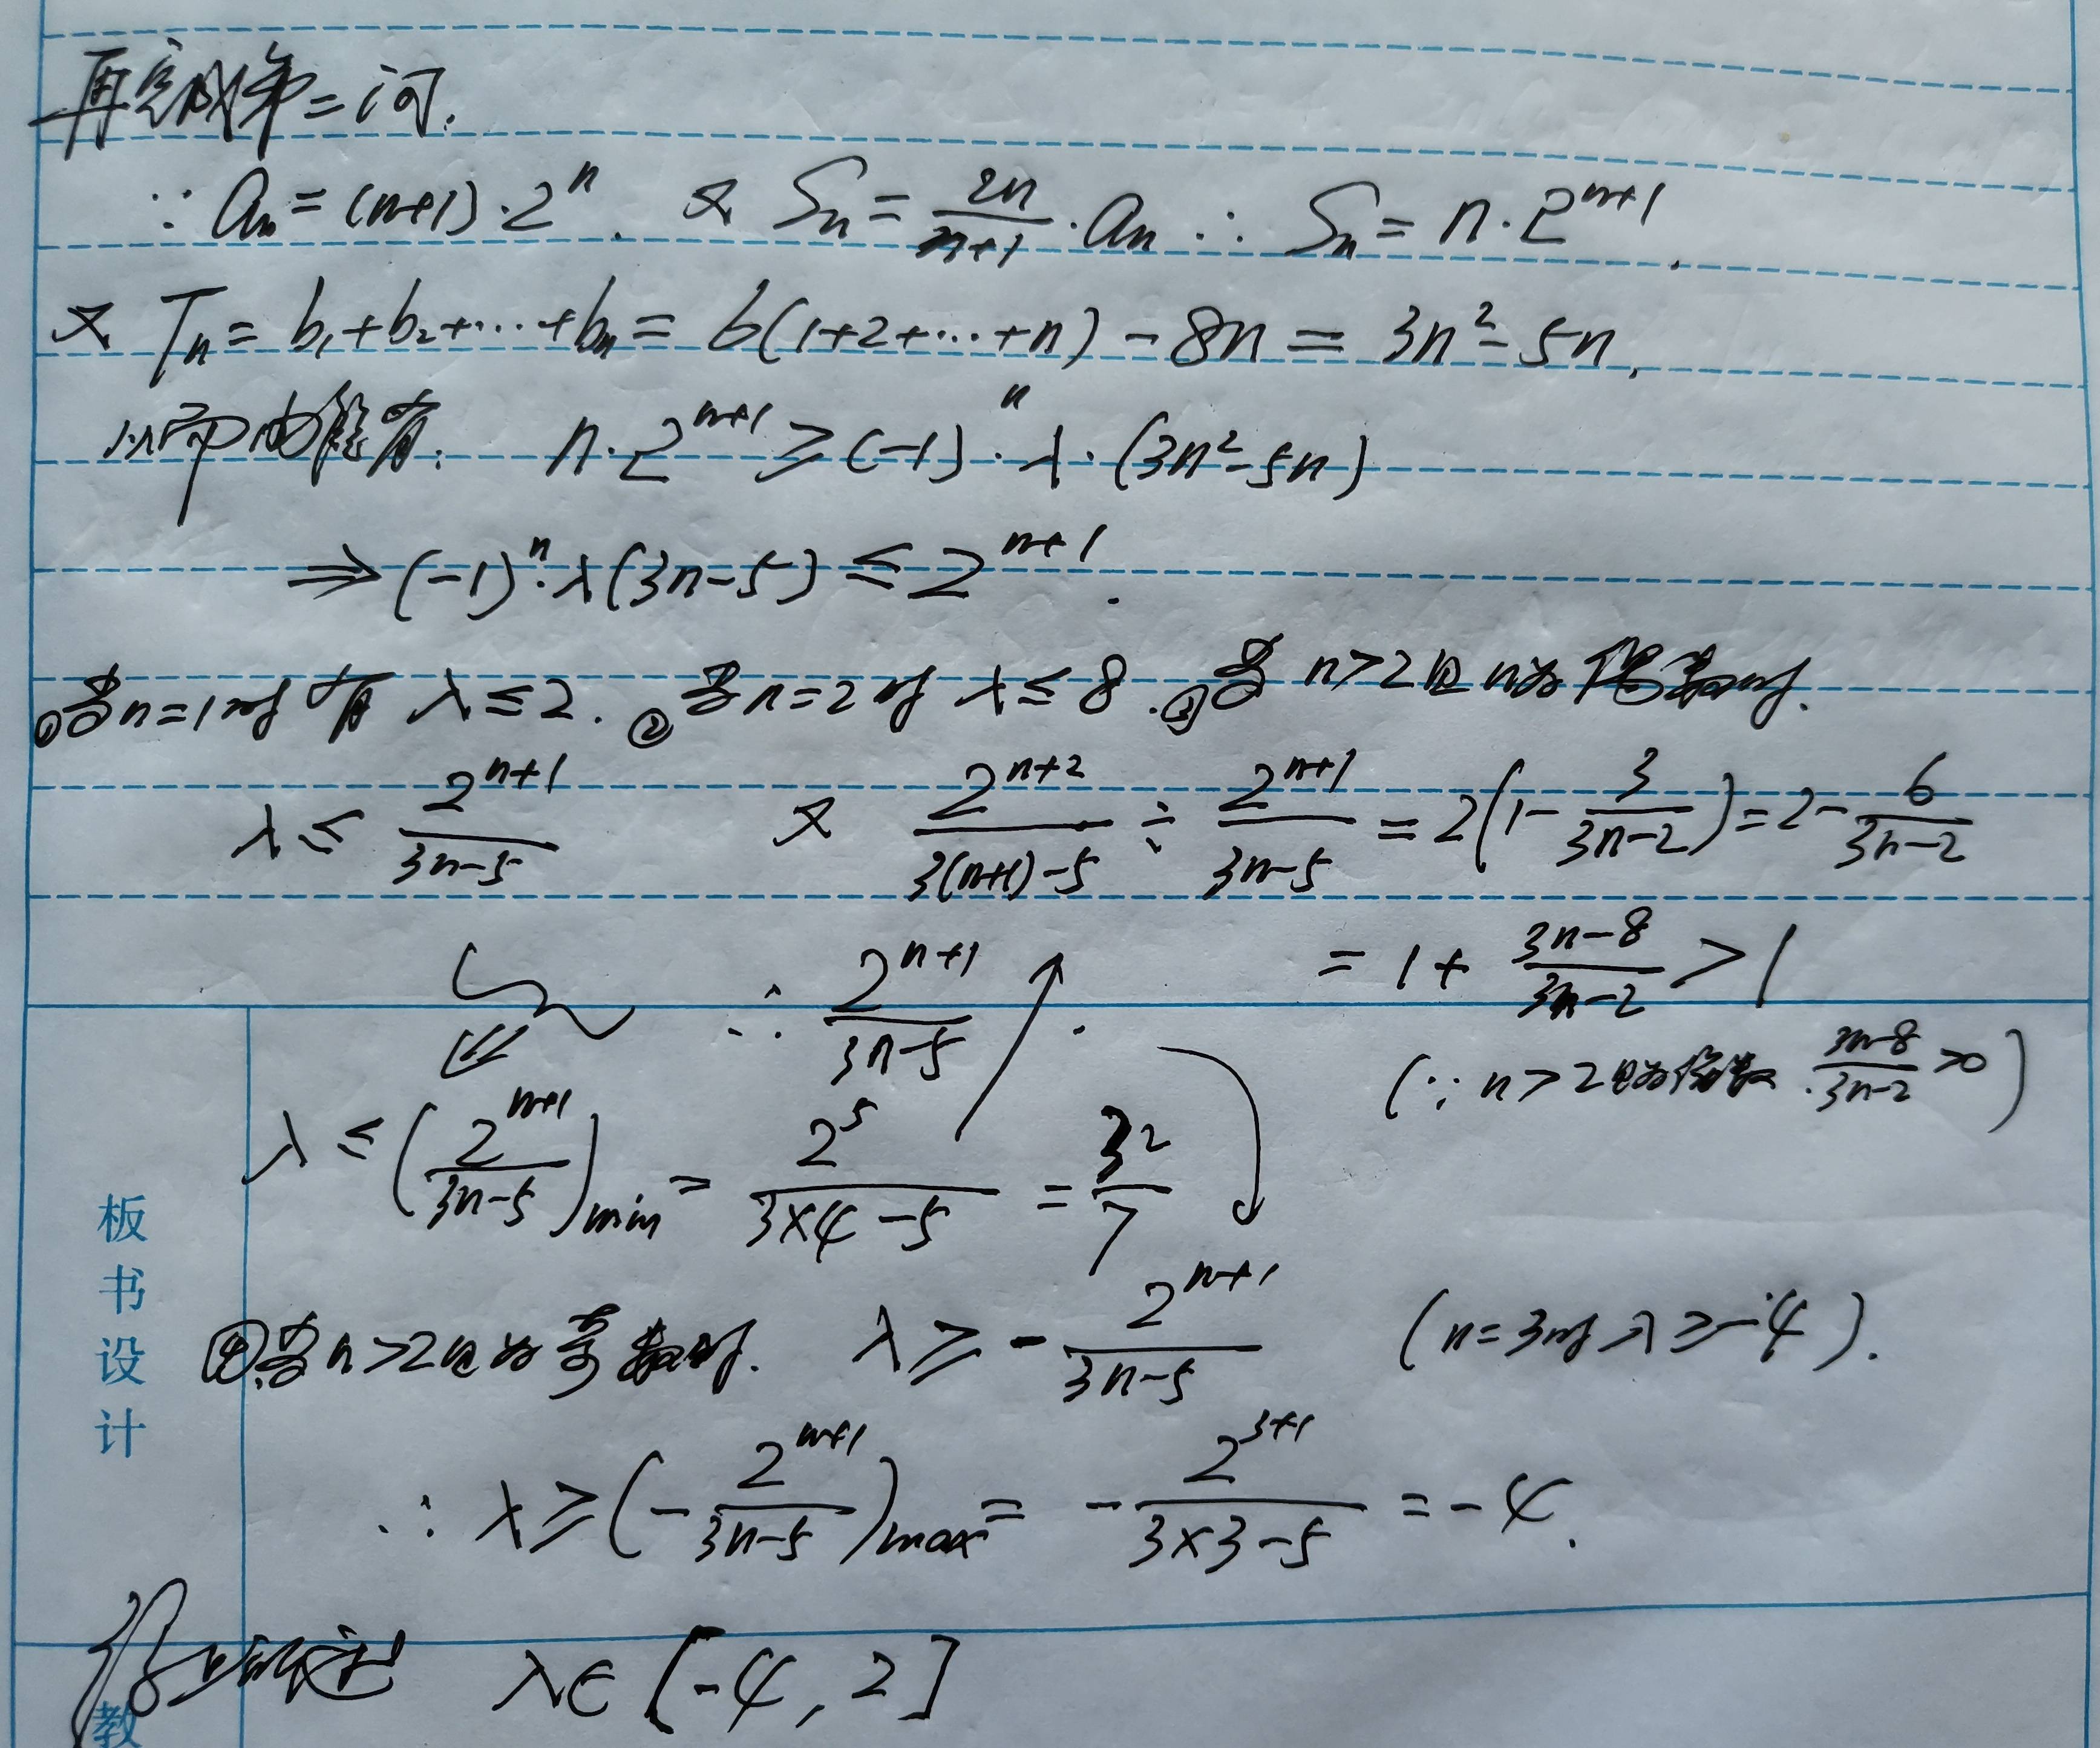 再完成第二问.
∵ aₙ = (n+1)·2ⁿ. 又 Sₙ = 2n/(n+1)·aₙ ∴ Sₙ = n·2ⁿ⁺¹.
又 Tₙ = b₁+b₂+⋯+bₙ = 6(1+2+⋯+n) - 8n = 3n² - 5n.
从而由题有: n·2ⁿ⁺¹ ≥ (-1)ⁿ·λ·(3n²-5n)
⇒ (-1)ⁿ·λ(3n-5) ≤ 2ⁿ⁺¹.
①当n=1时有 λ≤2. ②当n=2时 λ≤8. ③当 n>2且n为偶数时.
λ ≤ 2ⁿ⁺¹/(3n-5) 又 2ⁿ⁺²/(3(n+1)-5) ÷ 2ⁿ⁺¹/(3n-5) = 2(1 - 3/(3n-2)) = 2 - 6/(3n-2)
∴ 2ⁿ⁺¹/(3n-5) ↗. = 1 + (3n-8)/(3n-2) > 1
(∵ n>2且为偶数. (3n-8)/(3n-2) >0)
λ ≤ (2ⁿ⁺¹/(3n-5))min = 2⁵/(3×4-5) = 32/7
④当n>2且为奇数时. λ ≥ - 2ⁿ⁺¹/(3n-5) (n=3时 λ≥-4).
∴ λ ≥ (- 2ⁿ⁺¹/(3n-5))max = - 2³⁺¹/(3×3-5) = -4.
综上所述 λ∈[-4, 2]
板书设计
教